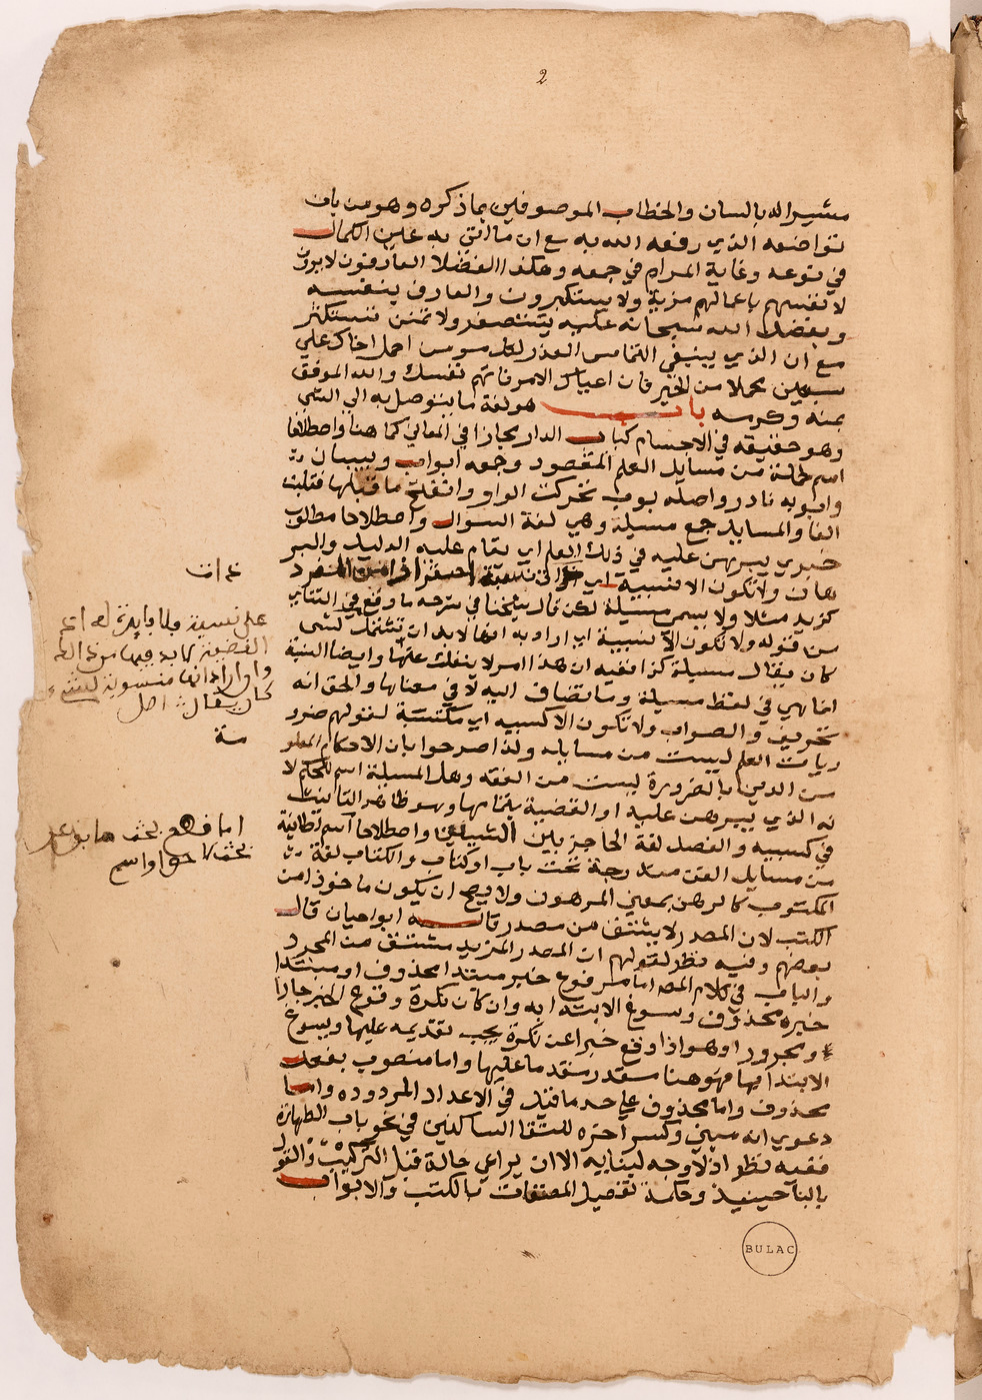 2
مشيرا له بالسان والخطاب الموصوفين بما ذكره وهو من باب
تواضعه الذي رفعه الله به مع ان ما اتي به عين الكمال
في نوعه وغاية المرام في جمعه وهكذا الفضلا العارفون لا يرون
لانفسهم باعمالهم مزية ولا يستكبرون والعارف بنفسه
وبفضل الله سبحانه عليه يستصغر ولا تمنن تستكثر
مع ان الذي ينبغي التماس العذر احمل اخاك علي
سبعين محملا من الخير فان اعياك الامر فاتهم نفسك والله الموفق
بمنه وكرمه باب هو لغة ما يتوصل به الي الشي
وهو حقيقة في الاجسام كباب الدار مجازا في المعاني كما هنا واصطلاحا
اسم لجملة من مسايل العلم المقصود وجمعه ابواب وبيبان
وابوبه نادر واصله بوب تحركت الواو وانفتح ما قبلها فقلبت
الفا والمسايل جمع مسيلة وهي لغة السوال واصطلاحا مطلوب
خبري يبرهن عليه في ذلك العلم اي يقام عليه الدليل والبر
هان ولا تكون الا نسبية اي المفرد
كزيد مثلا ولا يسمي مسيلة لكن قال شيخنا في شرحه ما وقع في التتاي
من قوله ولا تكون الا نسبية اي اراد به انها لابد ان تشتمل
كان يقال مسيلة كذا ففيه ان هذا امر لا ينفك عنها وايضا النسبة
انما هي في لفظ مسيلة وما تضاف اليه لا في معناها والحق انه
تحريف والصواب ولا تكون الا كسبيه اي مكتسبة لقولهم ضرو
ريات العلم ليست من مسايله ولذا صرحوا بان الاحكام المعلو
من الدين بالضرورة ليست من الفقه وهل المسيلة اسم للحكم لا
نه الذي يبرهن عليه او القضية بتمامها وهو ظاهر التانيث
في كسبيه والفصل لغة الحاجز بين الشييين واصطلاحا اسم لطايفة
من مسايل الفن مندرجة تحت باب او كتاب والكتاب لغة
المكتوب كالرهن بمعني المرهون ولا يصح ان يكون ماخوذا من
الكتب لان المصدر لا يشتق من مصدر قاله ابو حيان قال
بعضهم وفيه نظر لقولهم ان المصدر المزيد مشتق من المجرد
والباب في كلام المص اما مرفوع خبر مبتدا محذوف او مبتدا
خبره محذوف وسوغ الابتدا به وان كان نكرة وقوع الخبر جارا
ومجرور او هو اذا وقع خبرا عن نكرة يجب تقديمه عليها ويسوغ
الابتدا بها فهو هنا مقدر متقدما عليها واما منصوب بفعل
محذوف واما محذوف علي حد ما قيل في الاعداد المردوده واما
دعوي انه مبني وكسر اخره للتقا الساكنين في نحو باب الطهارة
ففيه نظر اذ لا وجه لبنايه الا ان يراعي حالة قبل التركيب والقول
بالبنا حينيذ وحكمة تفصيل المصنفات بالكتب والابواب
علي نسبية
وان اراد انها منسوبة لشي
كان يقال اصل
واسم
BULAC